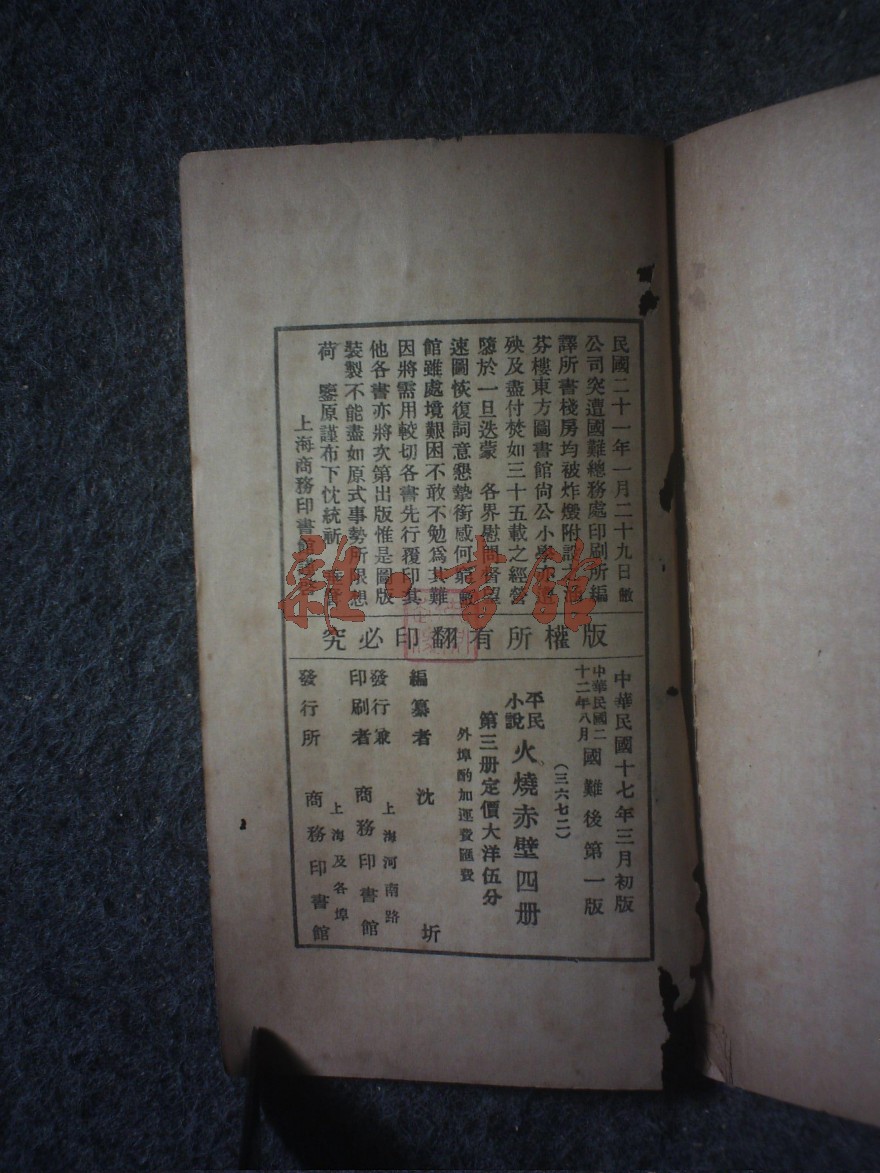 民國二十一年一月二十九日敝
公司突遭國難總務處印刷所編
譯所書棧房均被炸燬附設之涵
芬樓東方圖書館尚公小學亦遭
殃及盡付焚如三十五載之經營
隳於一旦迭蒙 各界慰問督望
速圖恢復詞意懇摯銜感何窮敝
館雖處境艱困不敢不勉爲其難
因將需用較切各書先行覆印其
他各書亦將次第出版惟是圖版
裝製不能盡如原式事勢所限想
荷 鑒原謹布下忱統祈
上海商務印書館
版權所有翻印必究
中華民國十七年三月初版
中華民國二十二年八月國難後第一版
(三六七二)
平民小說 火燒赤壁四册
第三册定價大洋伍分
外埠酌加運費匯費
編纂者 沈圻
發行兼印刷者 上海河南路 商務印書館
發行所 上海及各埠 商務印書館
雜·書館